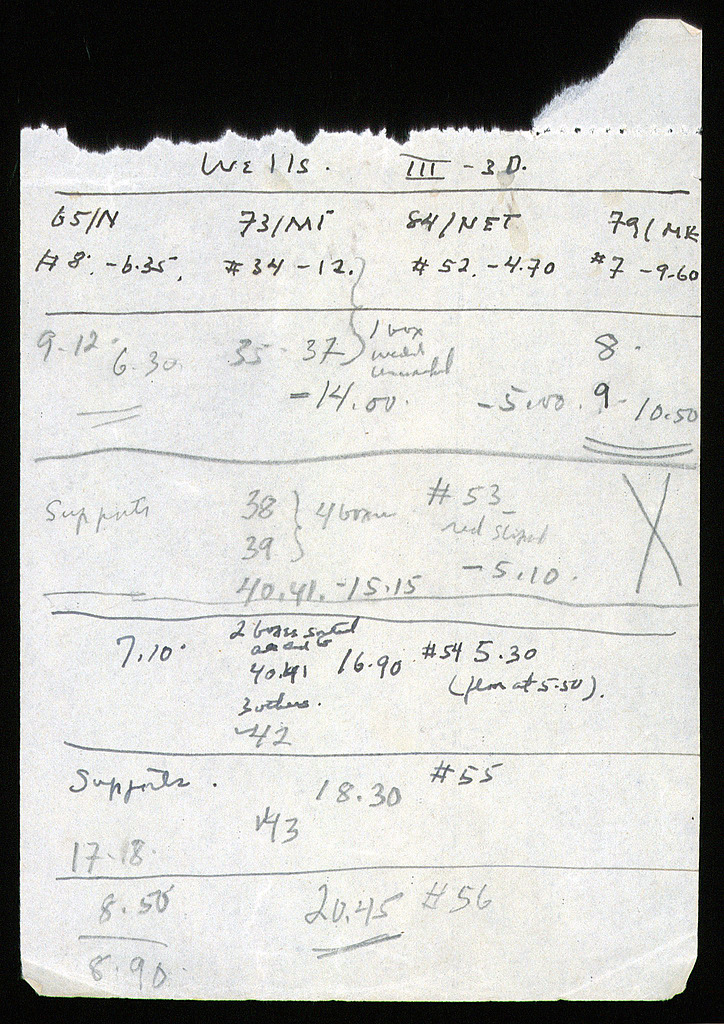 Wells. III - 3D.
65/N 73/MT 84/NET 79/MK
#8. -6.35. #34 -12. #52. -4.70 #7 -9.60
9-12. 6.30 35 - 37 1 box 8.
-14.00. -5.00. 9 - 10.50
Supports 38 4 boxes #53
39 red striped
40.41. -15.15 -5.10.
7.10. 2 boxes
40.41 16.90 #54 5.30
3 others. (floor at 5.50).
42
Supports. 18.30 #55
43
17-18.
8.50 20.45 #56
8.90